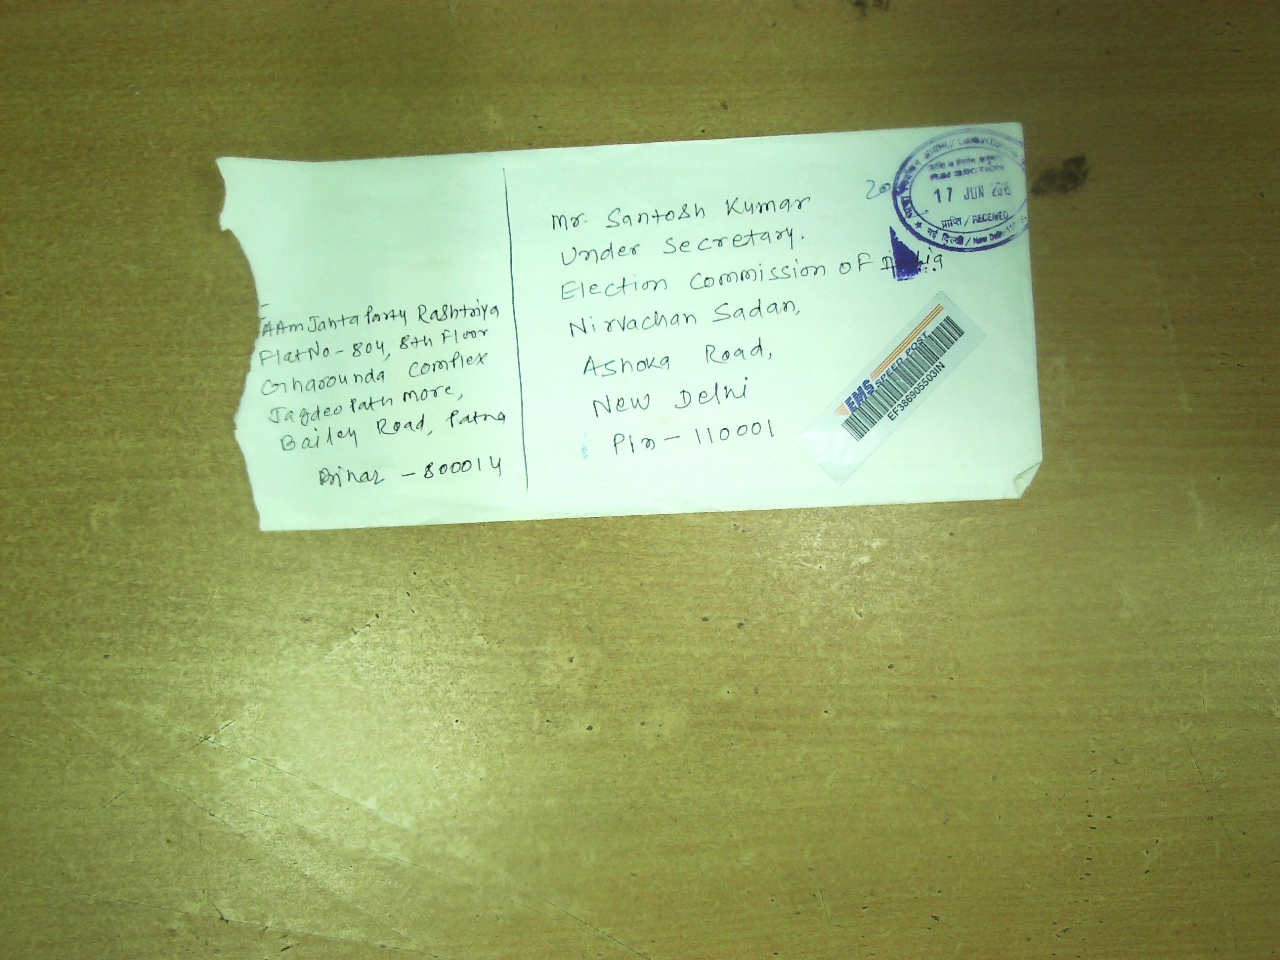 AAm Janta Party Rashtriya
Flat No - 804, 8th Floor
Gharounda Complex
Jagdeo Path More,
Bailey Road, Patna
Bihar - 800014
Mr. Santosh Kumar
Under Secretary.
Election Commission OF India
Nirvachan Sadan,
Ashoka Road,
New Delhi
Pin - 110001
17 JUN
प्राप्ति / RECEIVED
नई दिल्ली / New Delhi
EMS SPEED POST
EF386905503IN